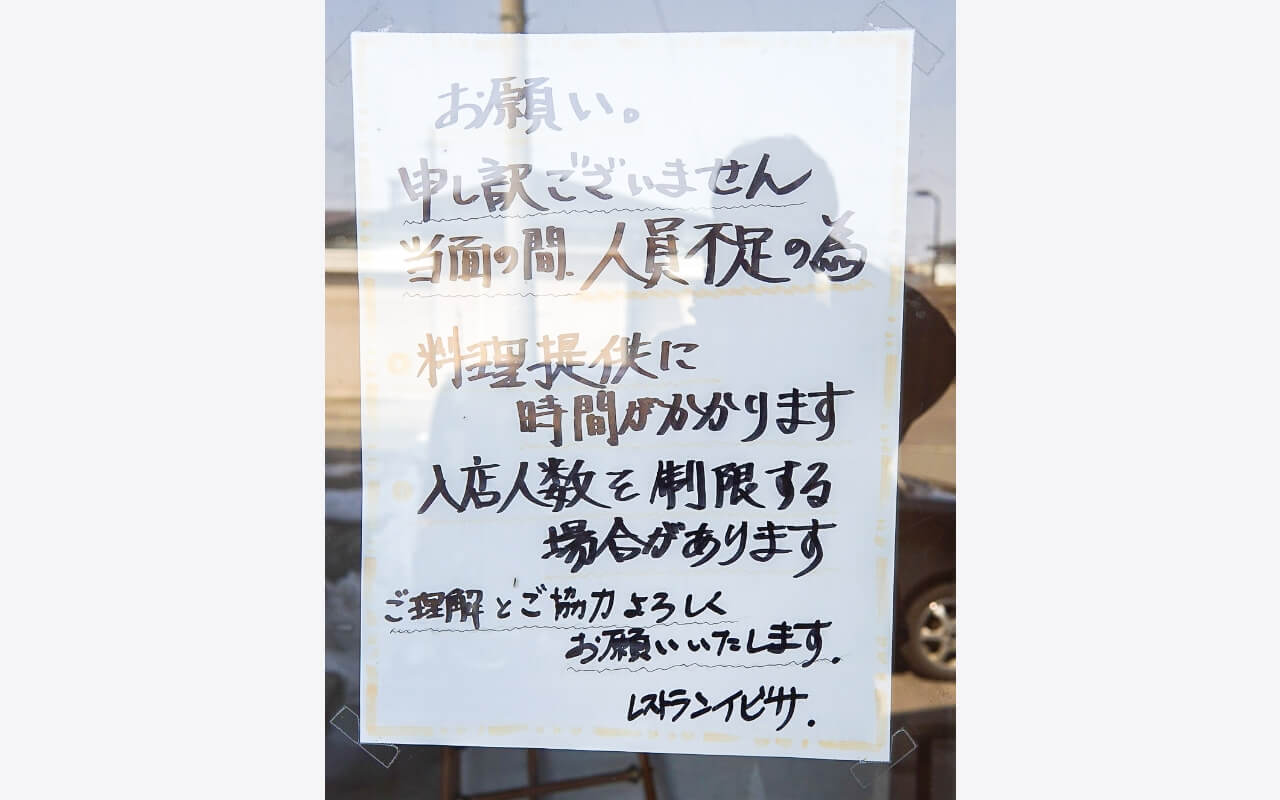 お願い。
申し訳ございません
当面の間、人員不足の為
料理提供に
時間がかかります
入店人数を制限する
場合があります
ご理解とご協力よろしく
お願いいたします.
レストランイビサ.